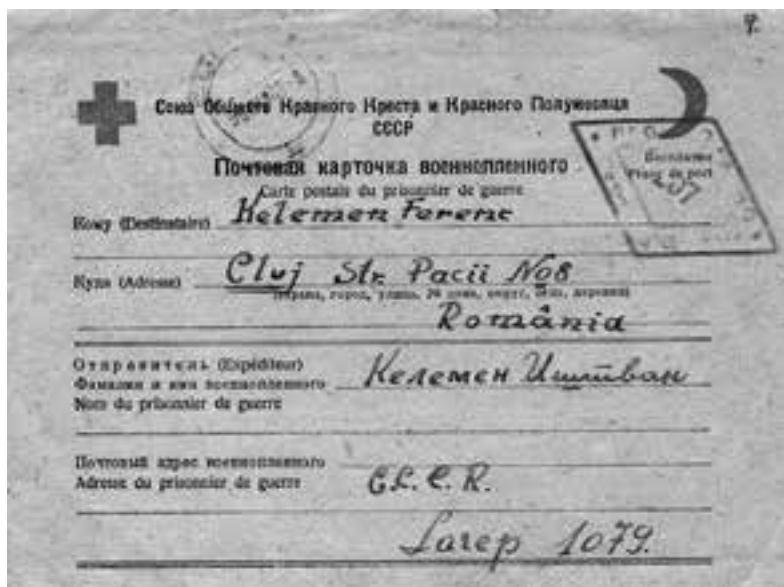 4.
Союз Обществ Красного Креста и Красного Полумесяца
СССР
Почтовая карточка военнопленного
Carte postale du prisonnier de guerre
Бесплатно
Franc de port
Кому (Destinataire) Kelemen Ferenc
Куда (Adresse) Cluj Str. Pacii No8
(страна, город, улица, № дома, округ, село, деревня)
România
Отправитель (Expéditeur)
Фамилия и имя военнопленного Келемен Иштван
Nom du prisonnier de guerre
Почтовый адрес военнопленного
Adresse du prisonnier de guerre
Лагер 1079.